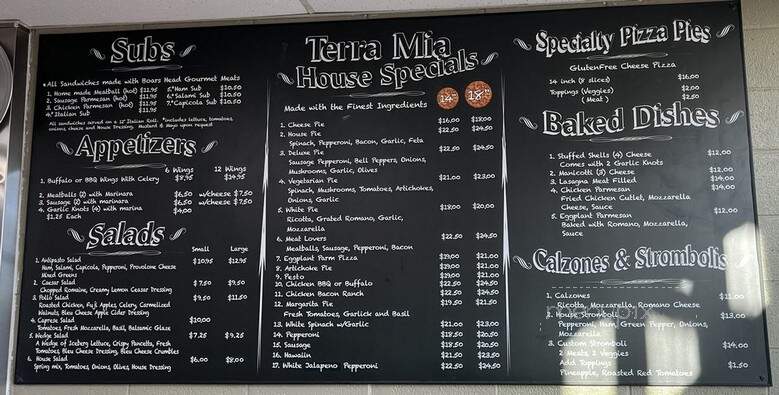 Subs
*All Sandwiches made with Boars Head Gourmet Meats
1. Home made Meatball (hot) $11.95 5.*Ham Sub $10.50
2. Sausage Parmesan (hot) $11.95 6.*Salami Sub $10.50
3. Chicken Parmesan (hot) $11.95 7.*Capicola Sub $10.50
4.*Italian Sub $11.95
All sandwiches served on a 12" Italian Roll. *includes lettuce, tomatoes,
onions cheese and House Dressing. Mustard & Mayo upon request
Appetizers
6 Wings 12 Wings
1. Buffalo or BBQ Wings With Celery $7.95 $14.95
2. Meatballs (2) with Marinara $6.50 w/cheese $7.50
3. Sausage (2) with marinara $6.50 w/cheese $7.50
4. Garlic Knots (4) with marina $4.00
$1.25 Each
Salads
Small Large
1. Antipasto Salad $10.95 $12.95
Ham, Salami, Capicola, Pepperoni, Provolone Cheese
Mixed Greens
2. Caesar Salad $7.50 $9.50
Chopped Romaine, Creamy Lemon Ceasar Dressing
3. Pollo Salad $9.50 $11.50
Roasted Chicken, Fuji Apples, Celery, Carmelized
Walnuts, Bleu Cheese Apple Cider Dressing
4. Caprese Salad $10.00
Tomatoes, Fresh Mozzarella, Basil, Balsamic Glaze
5. Wedge Salad $7.25 $9.25
A Wedge of Iceberg Lettuce, Crispy Pancetta, Fresh
Tomatoes, Bleu Cheese Dressing, Bleu Cheese Crumbles
6. House Salad $6.00 $8.00
Spring mix, Tomatoes, Onions, Olives, House Dressing
Terra Mia
House Specials
Made with the Finest Ingredients 14" 18"
1. Cheese Pie $16.00 $18.00
2. House Pie $22.50 $24.50
Spinach, Pepperoni, Bacon, Garlic, Feta
3. Deluxe Pie $22.50 $24.50
Sausage Pepperoni, Bell Peppers, Onions,
Mushrooms, Garlic, Olives
4. Vegetarian Pie $21.00 $23.00
Spinach, Mushrooms, Tomatoes, Artichokes,
Onions, Garlic
5. White Pie $18.00 $20.00
Ricotta, Grated Romano, Garlic,
Mozzarella
6. Meat Lovers $22.50 $24.50
Meatballs, Sausage, Pepperoni, Bacon
7. Eggplant Parm Pizza $19.00 $21.00
8. Artichoke Pie $19.00 $21.00
9. Pesto $19.00 $21.00
10. Chicken BBQ or Buffalo $22.50 $24.50
11. Chicken Bacon Ranch $22.50 $24.50
12. Margarita Pie $19.50 $21.50
Fresh Tomatoes, Garlick and Basil
13. White Spinach w/Garlic $21.00 $23.00
14. Pepperoni $18.50 $20.50
15. Sausage $18.50 $20.50
16. Hawaiin $21.50 $23.50
17. White Jalapeno Pepperoni $22.50 $24.50
Specialty Pizza Pies
GlutenFree Cheese Pizza
14 inch (8 slices) $16.00
Toppings (Veggies) $2.00
(Meat) $2.50
Baked Dishes
1. Stuffed Shells (4) Cheese $12.00
Comes with 2 Garlic Knots
2. Manicotti (3) Cheese $12.00
3. Lasagna Meat Filled $14.00
4. Chicken Parmesan $14.00
Fried Chicken Cutlet, Mozzarella
Cheese, Sauce
5. Eggplant Parmesan $12.00
Baked with Romano, Mozzarella,
Sauce
Calzones & Strombolis
1. Calzones $11.00
Ricotta, Mozzarella, Romano Cheese
2. House Stromboli $13.00
Pepperoni, Ham, Green Pepper, Onions,
Mozzarella
3. Custom Stromboli $14.00
2 Meats, 2 Veggies
Add Toppings $1.50
Pineapple, Roasted Red Tomatoes